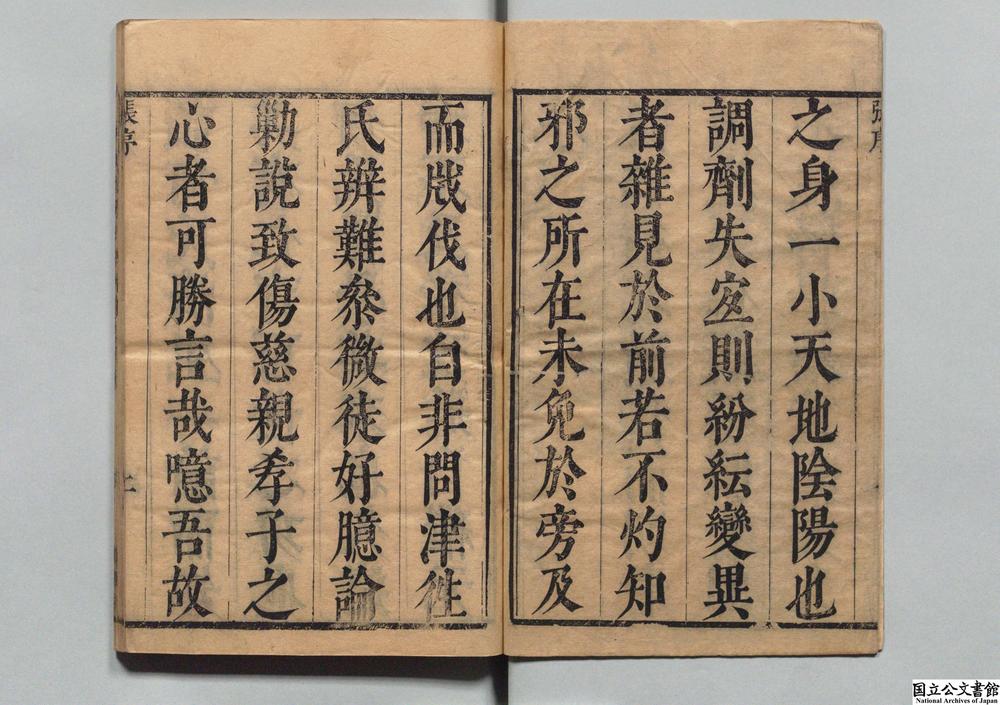 之身一小天地陰陽也
調劑失宐則紛紜變異
者雜見於前若不灼知
邪之所在未免於旁及
而戕伐也自非問津徃
氏辨難叅微徒好臆論
勦說致傷慈親孝子之
心者可勝言哉噫吾故
張序
上
国立公文書館
National Archives of Japan